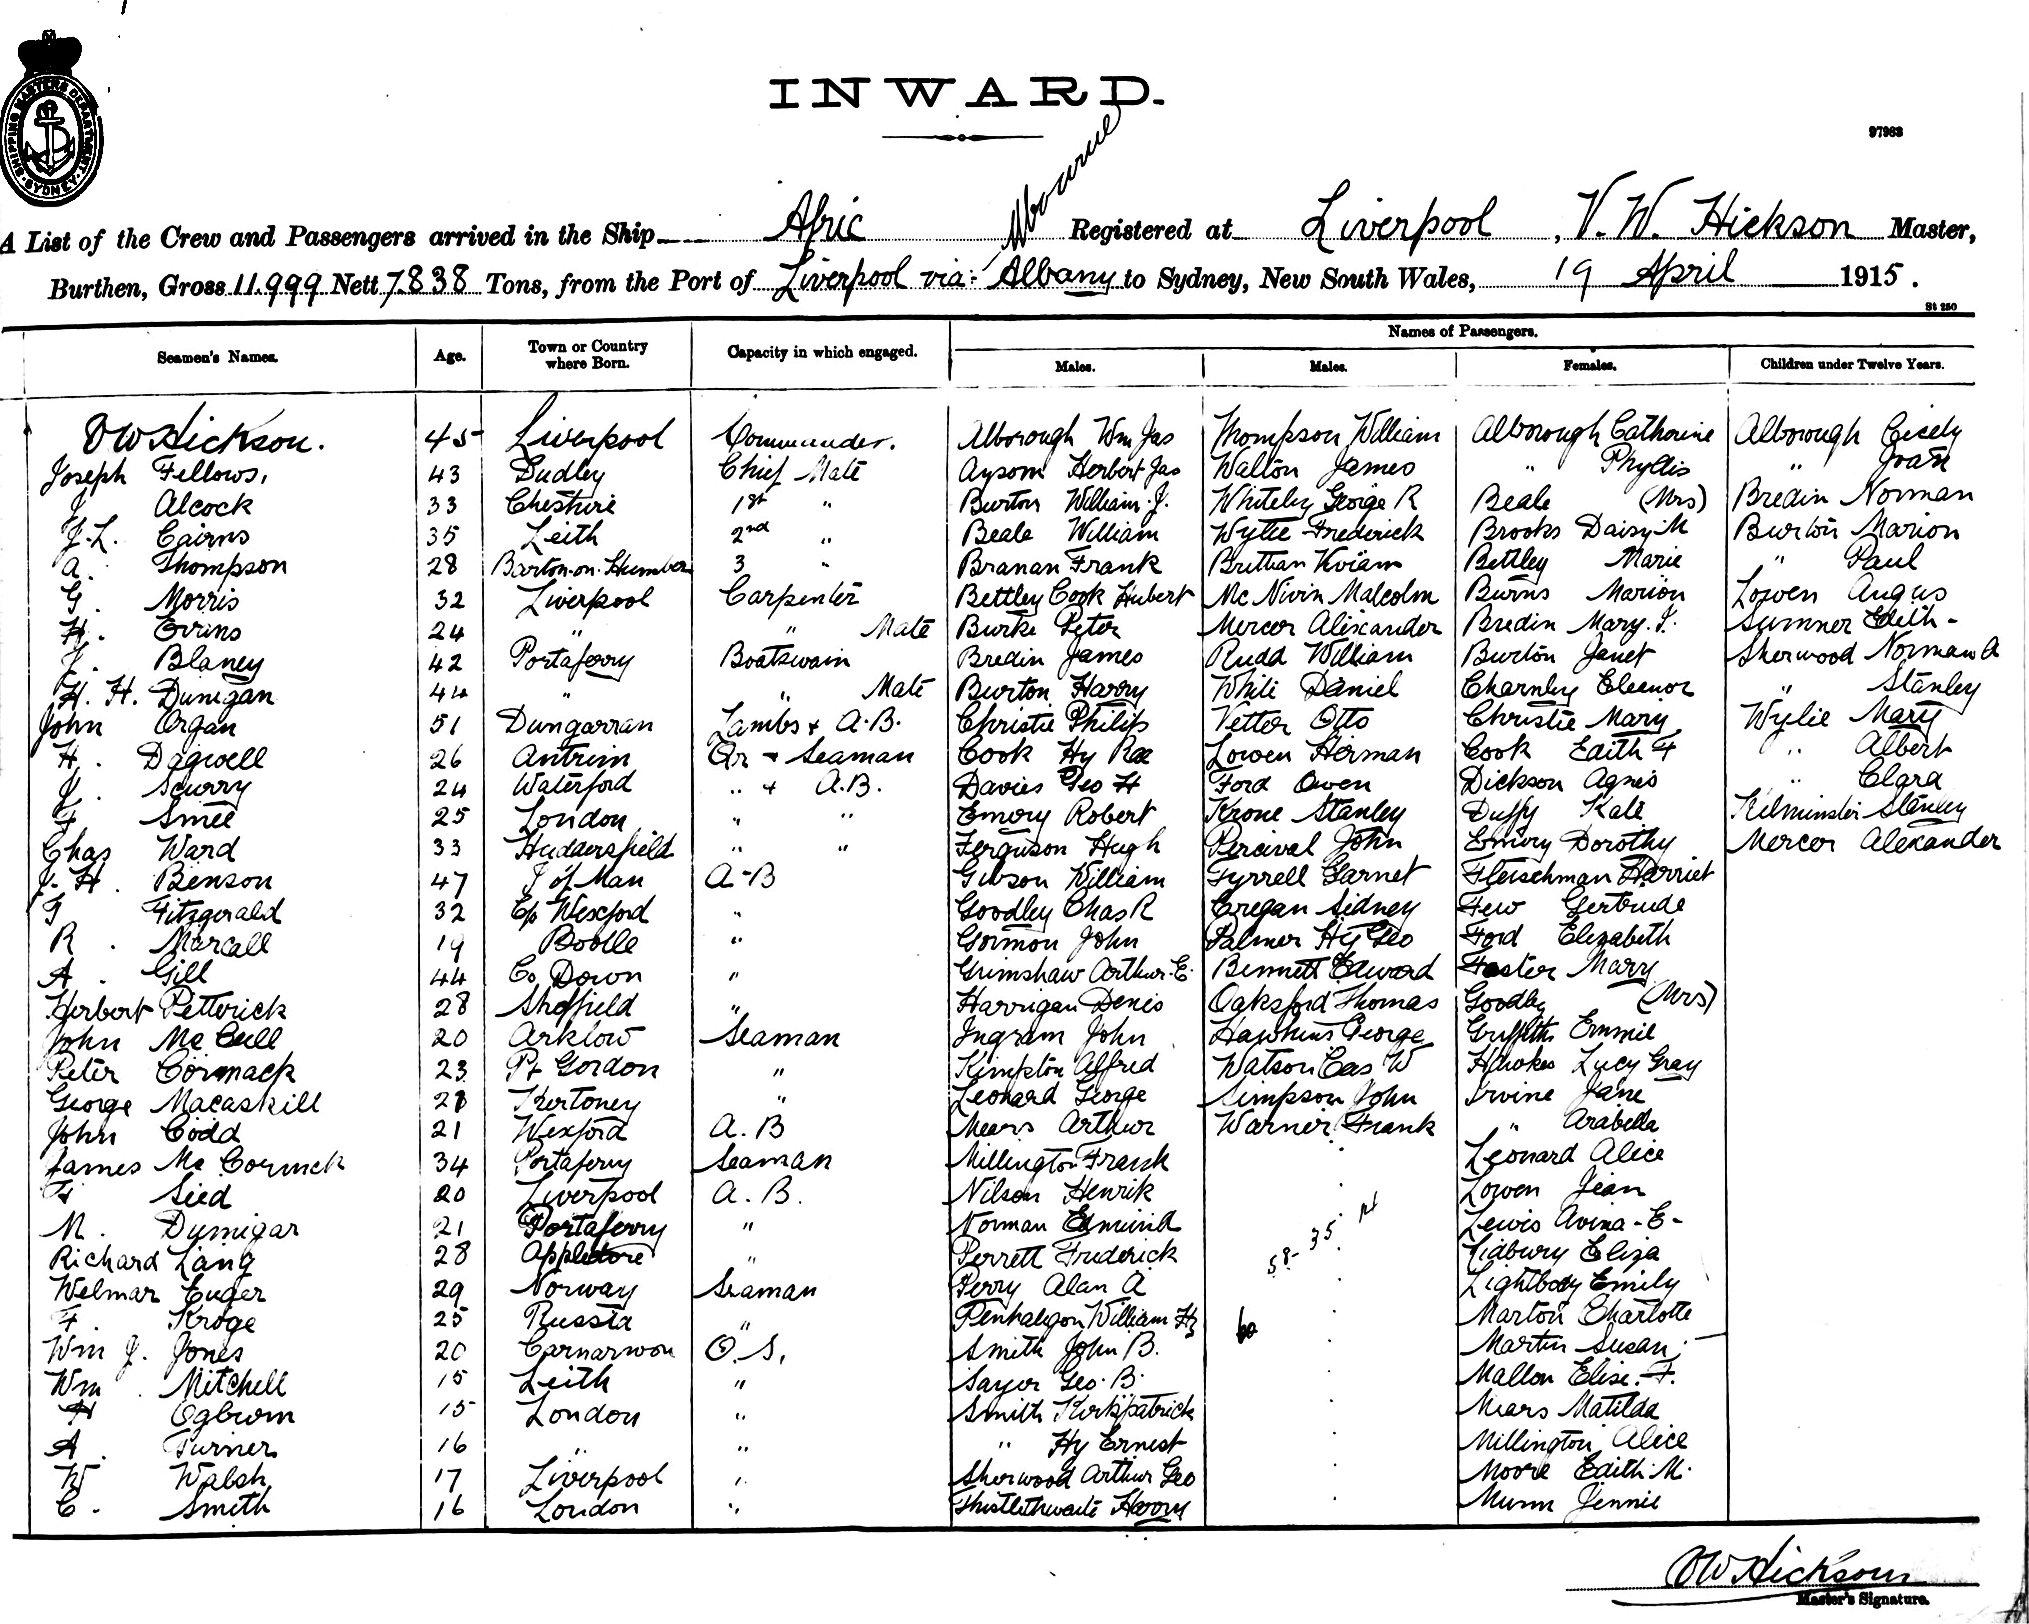 SHIPPING MASTERS DEPARTMENT SYDNEY
INWARD.
97983
A List of the Crew and Passengers arrived in the Ship Afric Registered at Liverpool , V. W. Hickson Master,
Burthen, Gross 11.999 Nett 7838 Tons, from the Port of Liverpool via: Albany to Sydney, New South Wales, 19 April 1915.
St 250
Seamen's Names. Age. Town or Country where Born. Capacity in which engaged. Names of Passengers.
Males. Males. Females. Children under Twelve Years.
VW Hickson. 45 Liverpool Commander. Alborough Wm Jas Thompson William Alborough Catherine Alborough Cicely
Joseph Fellows, 43 Dudley Chief Mate Aysom Herbert Jas Walton James " Phyllis " Joan
J Alcock 33 Cheshire 1st " Burton William J. Whiteley George R Beale (Mrs) Bredin Norman
J. L. Cairns 35 Leith 2nd " Beale William Wylie Frederick Brooks Daisy M Burton Marion
A. Thompson 28 Barton-on-Humber 3 " Branan Frank Brittian Bettley Marie " Paul
G. Morris 32 Liverpool Carpenter Bettley Cook Hubert Mc Nivin Malcolm Burns Marion Lowen Angus
H. Evins 24 " " Mate Burke Peter Mercer Alixander Bredin Mary. J. Sumner Edith -
J. Blaney 42 Portaferry Boatswain Bredin James Rudd William Burton Janet Sherwood Norman A
H. H. Dunigan 44 " " Mate Burton Harry White Daniel Charnley Eleenor " Stanley
John Organ 51 Dungarran Lambs + A.B. Christie Philip Vetter Otto Christie Mary Wylie Mary
H. Dagwell 26 Antrim Qr + Seaman Cook Hy Rae Lowen Herman Cook Edith F " Albert
J. Scurry 24 Waterford " + A.B. Davies Geo H Ford Owen Dickson Agnes " Clara
F Smee 25 London " " Emory Robert Krone Stanley Duffy Kate Kilminster Stanley
Chas Ward 33 Huddersfield " " Ferguson Hugh Percival John Emery Dorothy Mercer Alexander
J. H. Benson 47 I of Man A-B Gibson William Tyrrell Garnet Fleischman Harriet
G Fitzgerald 32 Co Wexford " Goodley Chas R Cregan Sidney Few Gertrude
R. Marcall 19 Bootle " Gormon John Palmer Hy Geo Ford Elizabeth
A. Gill 44 Co Down " Grimshaw Arthur. E. Bennett Edward Foster Mary
Herbert Pettvick 28 Sheffield " Harrigan Denis Oaksford Thomas Goodley (Mrs)
John Mc Cull 20 Arklow Seaman Ingram John Hawkins George Griffiths Emmie
Peter Cormack 23 Pt Gordon " Kimpton Alfred Watson Cas W Hawkes Lucy Gray
George Macaskill Leonard George Simpson John Irvine Jane
John Codd 21 Wexford A. B Mears Arthur Warner Frank " Arabella
James Mc Cormick 34 Portaferry Seaman Millington Frank Leonard Alice
20 Liverpool A. B. Nilson Henrik Lowen Jean
M. Dumigar 21 Portaferry " Norman Edmund Lewis Avina - E -
Richard Lang 28 Appledore " Perrett Frederick 58- 35 Lidbury Eliza
Welmar Euger 29 Norway Seaman Perry Alan A Lightbody Emily
F. Kroge 25 Russia " Penhalegon William Hy Marton Charlotte
Wm J. Jones 20 Carnarwon O. S. Smith John B. Martin Susan.
Wm. Mitchell 15 Leith " Sayer Geo. B. Mallon Elise. F.
H Ogburn 15 London " Smith Kirkpatrick Mears Matilda
A. Turner 16 " " " Hy Ernest Millington Alice
W Walsh 17 Liverpool " Sherwood Arthur Geo Moore Edith. M.
C. Smith 16 London " Thistlethwaite Harry Munn Jennie
VW Hickson
Master's Signature.